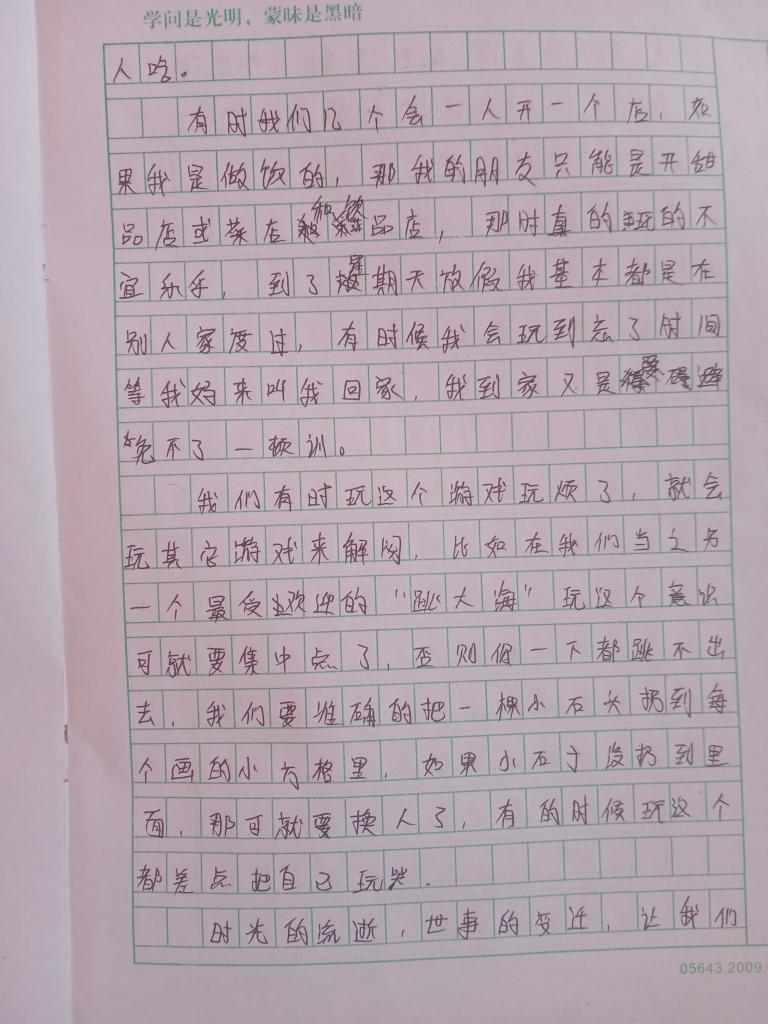 学问是光明，蒙昧是黑暗
人啥。
有时我们几个会一人开一个店，如
果我是做饮的，那我的朋友只能是开甜
品店或茶店和 品店，那时真的玩的不
宜乐乎，到了星期天放假我基本都是在
别人家度过，有时候我会玩到忘了时间
等我妈来叫我回家，我到家又是 避
免不了一顿训。
我们有时玩这个游戏玩烦了，就会
玩其它游戏来解闷，比如在我们当之为
一个最受欢迎的“跳大海”玩这个意
可就要集中点了，否则你一下都跳不出
去，我们要准确的把一棵小石头扔到每
个画的小方格里，如果小石子没扔到里
面，那可就要换人了，有的时候玩这个
都差点把自己玩哭.
时光的流逝，世事的变迁，让我们
05643.2009.